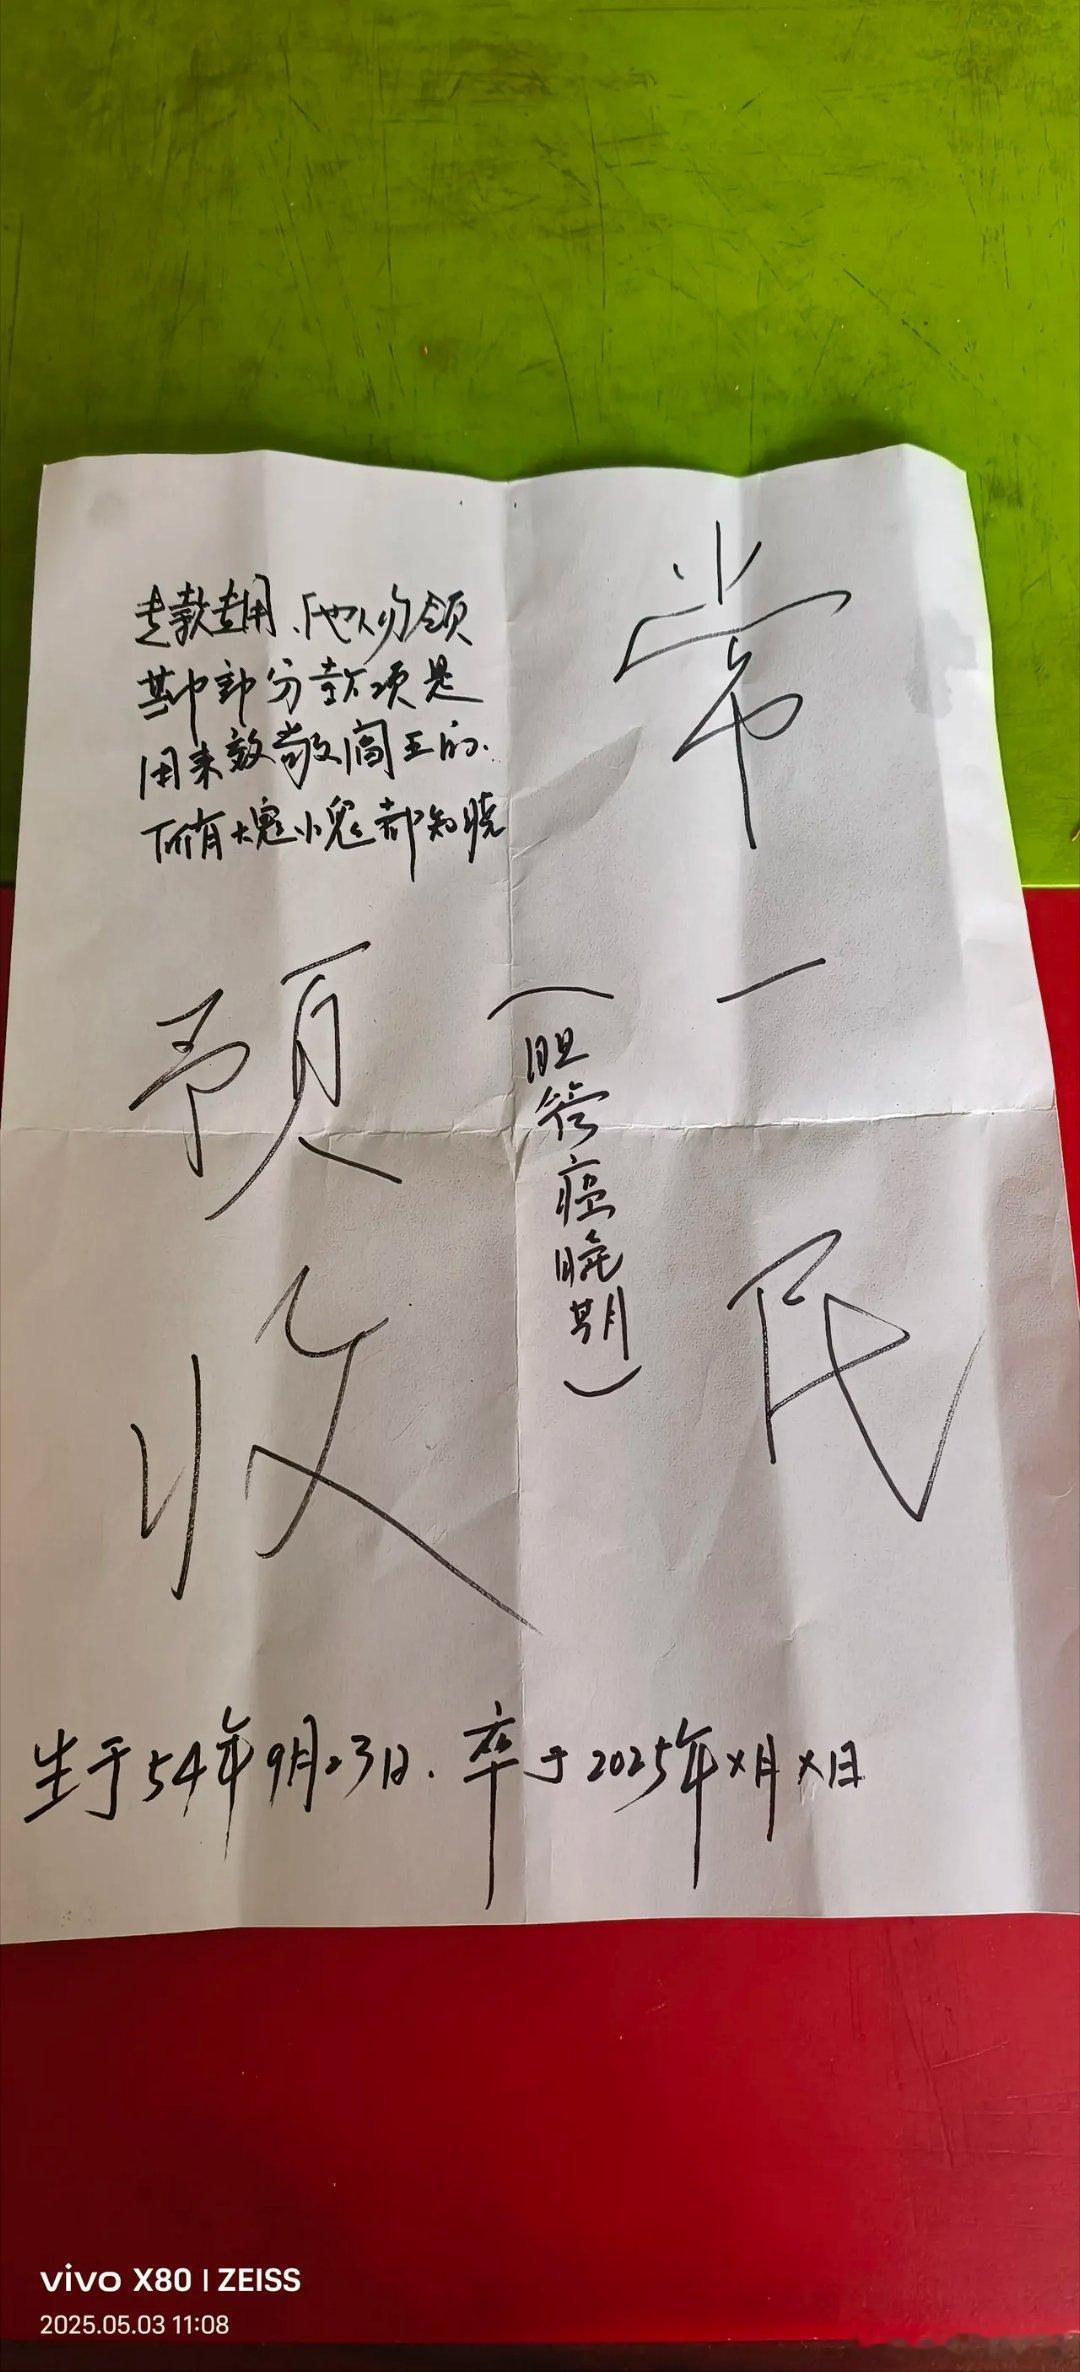 专款专用、他人勿领
其中部分款项是
用来效敬阎王的.
所有大鬼小鬼都知晓
常一民
(胆管癌晚期)
预收
生于54年9月23日. 卒于2025年x月x日
vivo X80 | ZEISS
2025.05.03 11:08